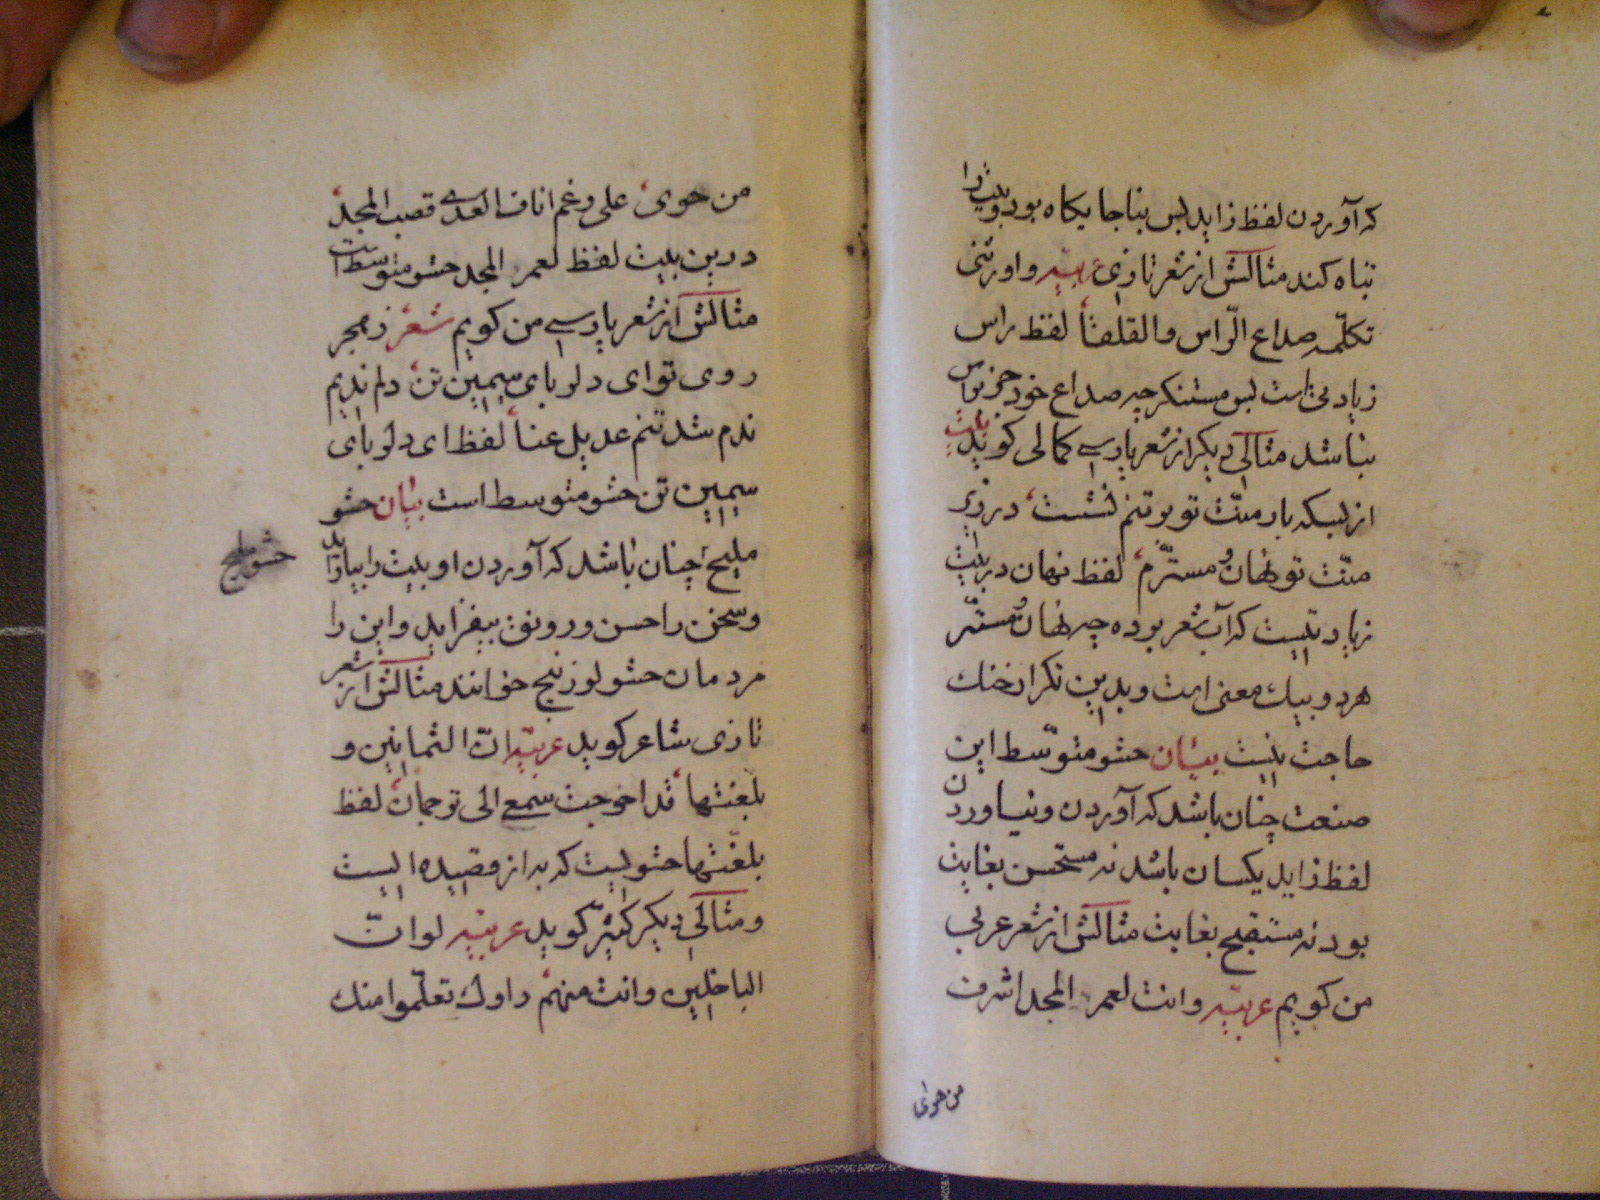 که آوردن لفظ زاید بس بناجایکاه بود و بیت را
تباه کند مثالش از شعر تازی عربیه و اورثنی
تکلّمه صداع الرّاس والقلقا لفظ راس
زیادتی است بس مستنکر چه صداع خود جز براس
نباشد مثالی دیکر از شعر پارسی کمالی کوید بیت
از بسکه بار منّت تو بر تنم نشست در زیر
منّت تو نهان و مسترّم لفظ نهان در بیت
زیادتیست که آب شعر بوده چه نهان و مستّر
هر دو بیک معنی است و بدین تکرار خنک
حاجت نیست بیان حشو متوسّط این
صنعت چنان باشد که آوردن و نیاوردن
لفظ زاید یکسان باشد نه مستحسن بغایت
بود نه مستقبح بغایت مثالش از شعر عربی
من کویم عربیّه وانت لعمر المجد اشرف
من حوی
من حوی علی رغم اناف العدی قصب المجد
درین بیت لفظ لعمر المجد حشو متوسط است
مثالش از شعر پارسی من کویم شعر ز هجر
روی تو ای دلربای سیمین تن دلم ندیم
ندم شد تنم عدیل عنا لفظ ای دلربای
سیمین تن حشو متوسط است بیان حشو
ملیح چنان باشد که آوردن او بیت را بیاراید
و سخن را حسن و رونق بیفزاید و این را
مردمان حشو لوزینج خوانند مثالش از شعر
تازی شاعر کوید عربیّه انّ الثمانین و
بلغتها قد احوجت سمعی الی ترجمان لفظ
بلّغتها حشویست که به از قصیده ایست
و مثالی دیکر کثیّر کوید عربیّه لو انّ
الباخلین وانت منهم راوك تعلّموا منك
حشو ملیح